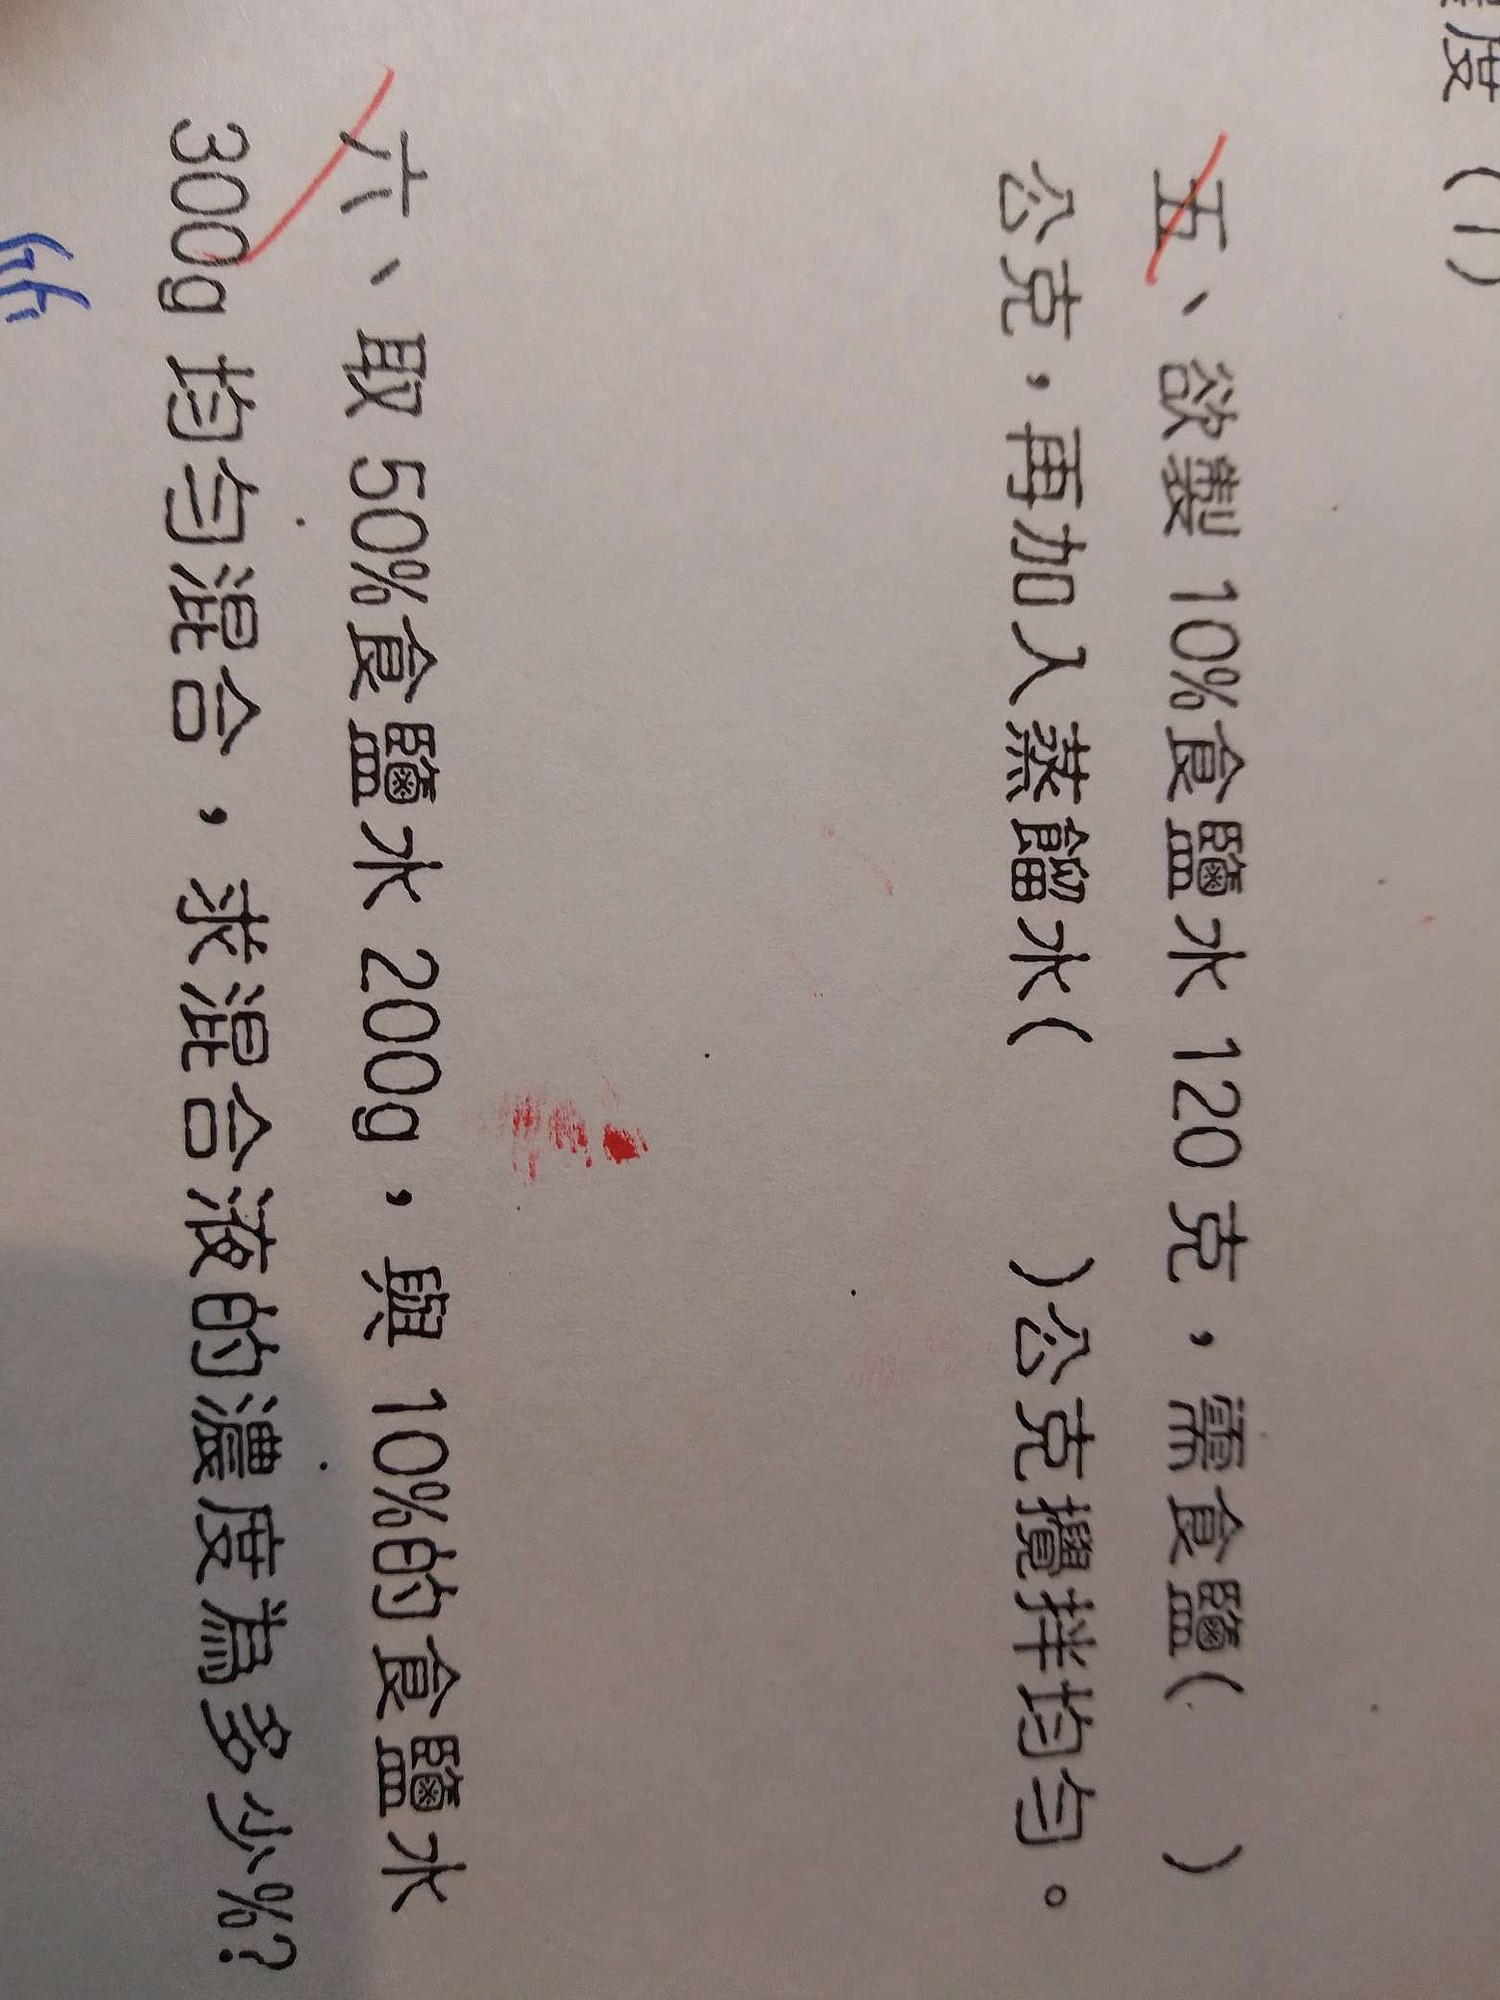 度(1)
五、欲製 10%食鹽水 120 克，需食鹽(      )
公克，再加入蒸餾水(      )公克攪拌均勻。
六、取 50%食鹽水 200g，與 10%的食鹽水
300g 均勻混合，求混合液的濃度為多少%?